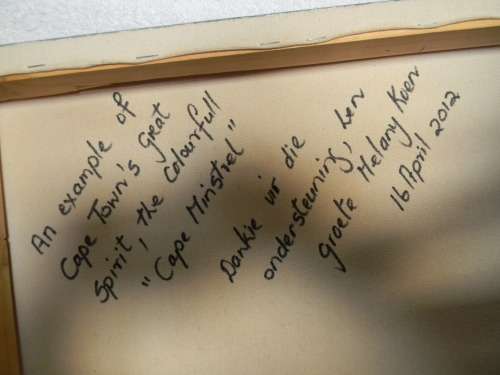 An example of
Cape Town's great
Spirit, the Colourfull
"Cape Minstrel"
Dankie vir die
ondersteuning, Len
Groete Melany Koen
16 April 2012